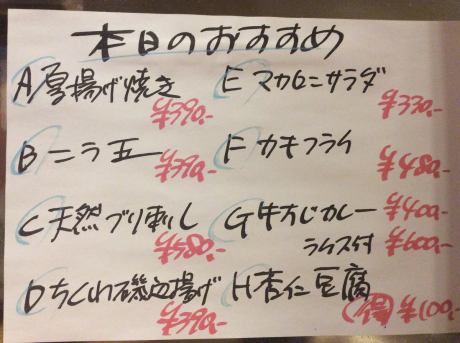 本日のおすすめ
A 厚揚げ焼き
¥390-
E マカロニサラダ
¥330-
B ニラ玉
¥390-
F カキフライ
¥480-
C 天然ブリ刺し
G 牛すじカレー ¥400-
ライス付 ¥600-
D ちくわ磯辺揚げ
H 杏仁豆腐
¥100-